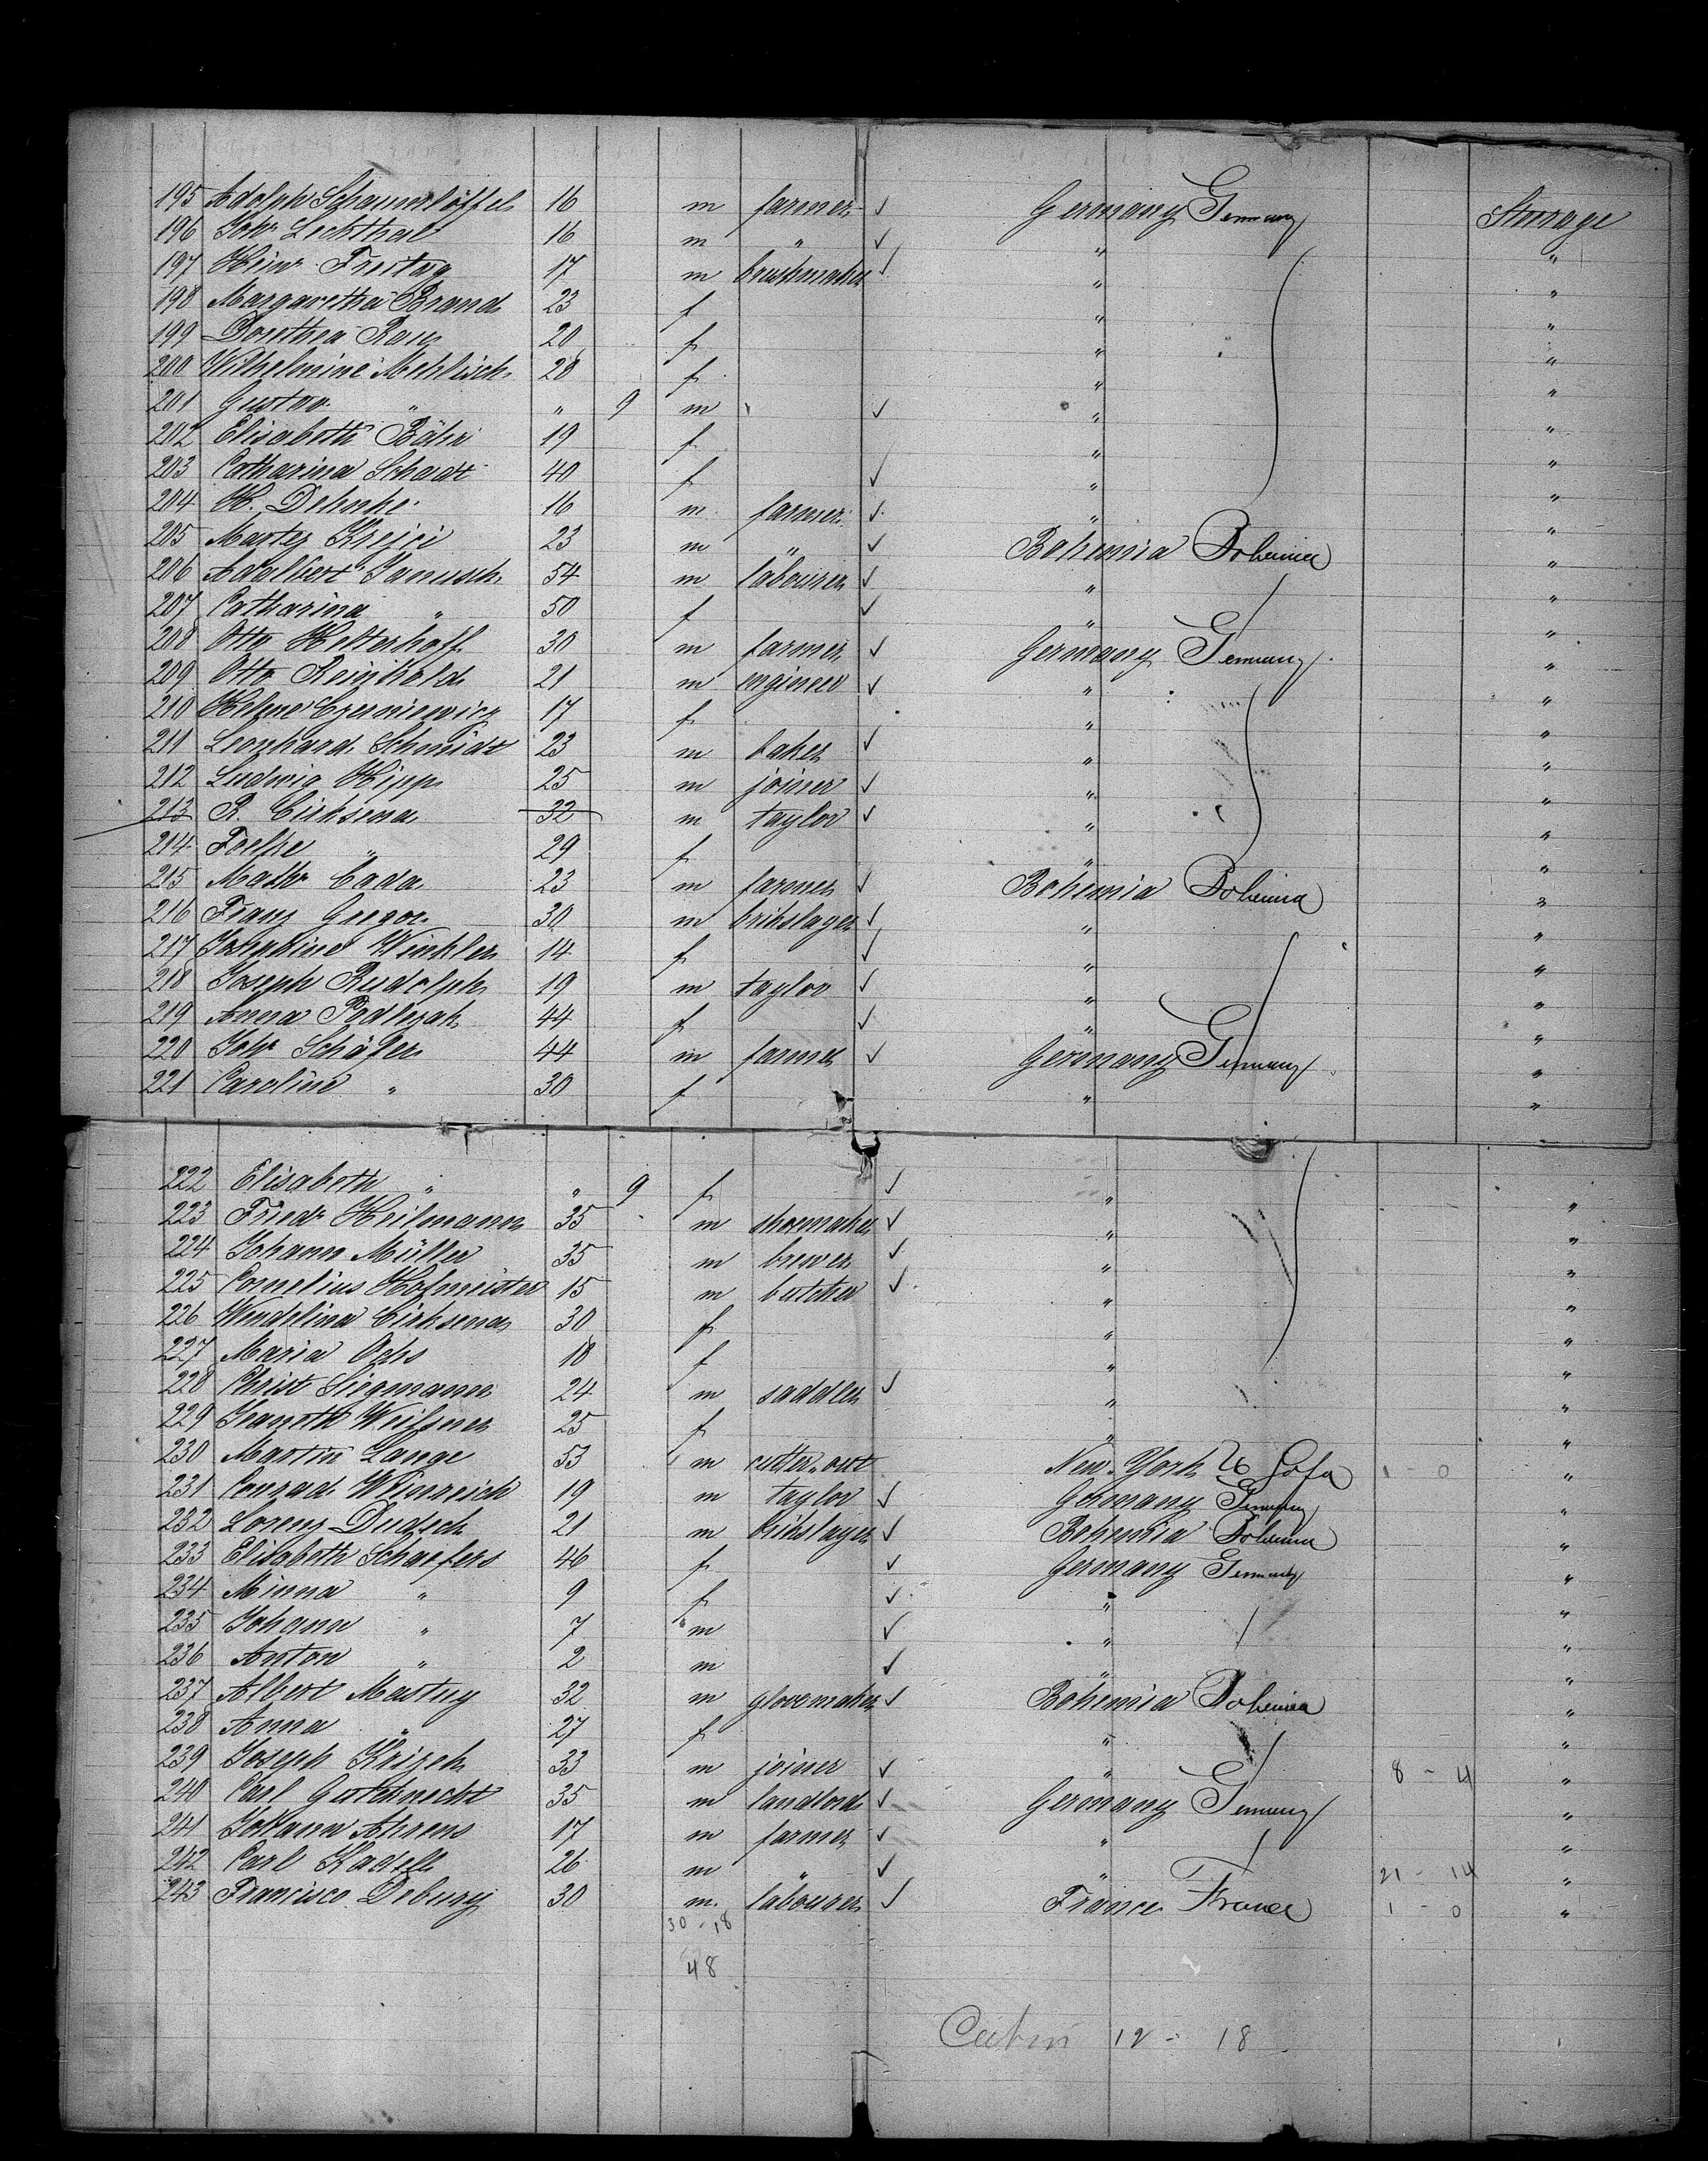 195 Adolph Schaumlöffel 16 m farmer ✓ Germany Germany Steerage
196 Johs Lichthal 16 m " ✓ " "
197 Heinr. Freitag 17 m brushmaker ✓ " "
198 Margaretha Brand 23 f " "
199 Dorothea 20 f " "
200 Wilhelmine Mehlisch 28 f " "
201 Gustav " " 9 m ✓ " "
202 Elisabeth Bähr 19 f " "
203 Catharina Schadt 40 f ✓ " "
204 H. Dehnke 16 m farmer ✓ " "
205 Krejci 23 m " ✓ Bohemia Bohemia "
206 Adalbert Janusch 54 m labourer ✓ " "
207 Catharina " 50 f ✓ " "
208 Otto Helterhoff 30 m farmer ✓ Germany Germany "
209 Otto Reinhold 21 m engineer ✓ " "
210 Helene Czerniewicz 17 f " "
211 Leonhard Schmidt 23 m baker ✓ " "
212 Ludwig Hipp 25 m joiner ✓ " "
213 R. Cirksena 32 m taylor ✓ " "
214 " 29 f " "
215 Mathr Cada 23 m farmer ✓ Bohemia Bohemia "
216 Franz Gregor 30 m brikslayer ✓ " "
217 Josephine Winkler 14 f ✓ " "
218 Joseph Rudolph 19 m taylor ✓ " "
219 Anna Podlezak 44 f ✓ " "
220 Johs Schäfer 44 m farmer ✓ Germany Germany "
221 Caroline " 30 f " "
222 Elisabeth " " 9 f ✓ " "
223 Friedr Heilmann 35 m shoemaker ✓ " "
224 Johann Müller 35 m brewer ✓ " "
225 Cornelius Hofmeister 15 m butcher ✓ " "
226 Wendelina Cirksena 30 f " "
227 Maria Ochs 18 f " "
228 Christ Siegmann 24 m saddler ✓ " "
229 Weissner 25 f " "
230 Martin Lange 53 m cutter-out New-York U S of a 1 - 0 "
231 Conrad Weinreich 19 m taylor ✓ Germany Germany "
232 Lorenz Dudsch 21 m brikslayer ✓ Bohemia Bohemia "
233 Elisabeth Schaefers 46 f ✓ Germany Germany "
234 Minna " 9 f ✓ " "
235 Johann " 7 m ✓ " "
236 Anton " 2 m ✓ " "
237 Albert Mastny 32 m glovemaker ✓ Bohemia Bohemia "
238 Anna " 27 f " "
239 Joseph Krizek 33 m joiner ✓ " 8 - 4 "
240 Carl Gutknecht 35 m landlord ✓ Germany Germany "
241 Johann Ahrens 17 m farmer ✓ " "
242 Carl Kadell 26 m " ✓ " 21 - 14 "
243 Francisco Debury 30 m. labourer ✓ France France 1 - 0 "
30 - 18
48
Cabin 12 - 18